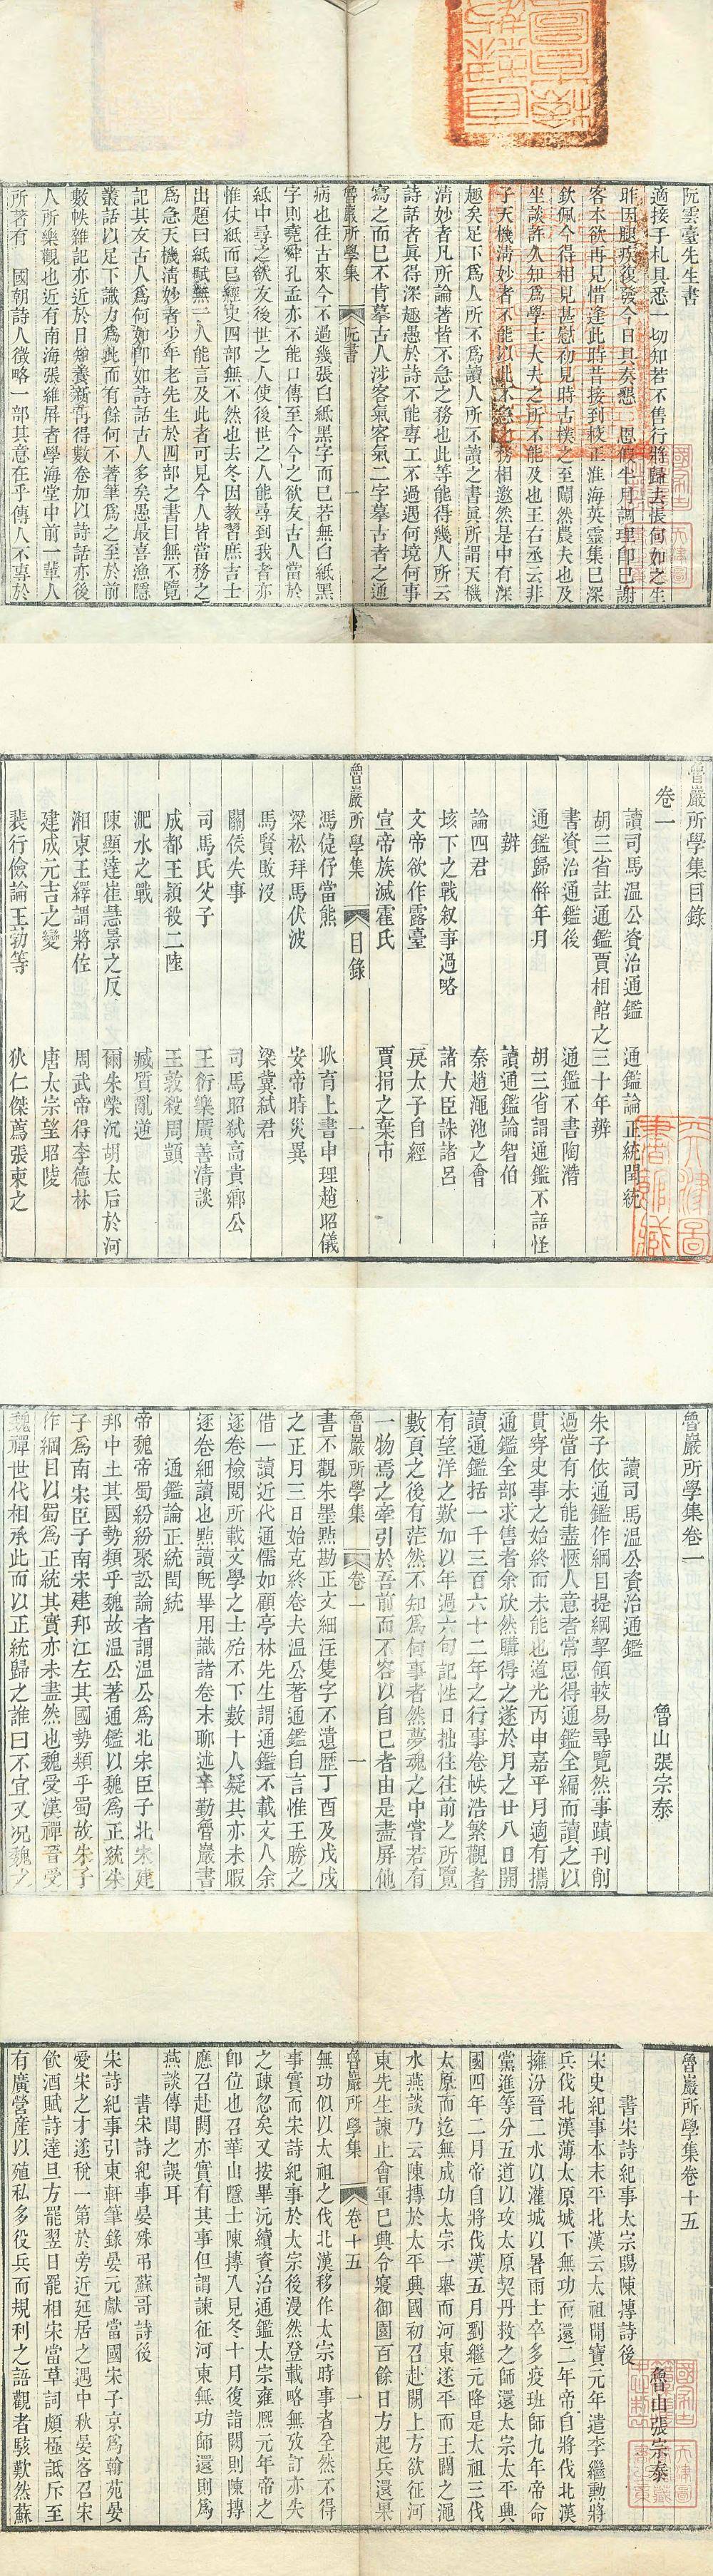 阮雲臺先生書
適接手札具悉一切知若不售行將歸去悵何如之生
昨因腿疾復發今日具奏懇　恩假半月調理即已謝
客本欲再見惜逢此時昔接到校正淮海英靈集已深
欽佩今得相見甚慰初見時古樸之至闇然農夫也及
坐談許久知為學士大夫之所不能及也王右丞云非
子天機清妙者不能以此不急之務相邀然是中有深
趣矣足下為人所不為讀人所不讀之書真所謂天機
清妙者凡所論著皆不急之務也此等能得幾人所云
詩話者真得深趣愚於詩不能專工不過遇何境何事
寫之而已不肯摹古人涉客氣客氣二字摹古者之通
魯巖所學集　阮書　一
病也往古來今不過幾張白紙黑字而已若無白紙黑
字則堯舜孔孟亦不能口傳至今今之欲友古人當於
紙中尋之欲友後世之人使後世之人能尋到我者亦
惟仗紙而已經史四部無不然也去冬因教習庶吉士
出題曰紙賦無一人能言及此者可見今人皆當務之
為急天機清妙者少年老先生於四部之書目無不覽
記其友古人為何如即如詩話古人多矣愚最喜漁隱
叢話以足下識力為此而有餘何不著筆為之至於前
數帙雜記亦近於日知養新再得數卷加以詩話亦後
人所樂觀也近有南海張維屏者學海堂中前一輩人
所著有　國朝詩人徵略一部其意在乎傳人不專於
魯巖所學集目錄
卷一
讀司馬温公資治通鑑　通鑑論正統閏統
胡三省註通鑑賈相館之三十年辨
書資治通鑑後　通鑑不書陶潛
通鑑歸餘年月　胡三省謂通鑑不語怪
辨　讀通鑑論智伯
論四君　秦趙澠池之會
垓下之戰叙事過略　諸大臣誅諸呂
文帝欲作露臺　戾太子自經
宣帝族滅霍氏　賈捐之棄市
魯巖所學集　目錄　一
馮倢伃當熊　耿育上書申理趙昭儀
梁松拜馬伏波　安帝時災異
馬賢敗沒　梁冀弑君
關侯失事　司馬昭弑高貴鄉公
司馬氏父子　王衍樂廣善清談
成都王穎殺二陸　王敦殺周顗
淝水之戰　臧質亂逆
陳顯達崔慧景之反　爾朱榮沉胡太后於河
湘東王繹謂將佐　周武帝得李德林
建成元吉之變　唐太宗望昭陵
裴行儉論王勃等　狄仁傑薦張柬之
魯巖所學集卷一
魯山張宗泰
讀司馬温公資治通鑑
朱子依通鑑作綱目提綱挈領較易尋覽然事蹟刊削
過當有未能盡愜人意者常思得通鑑全編而讀之以
貫穿史事之始終而未能也道光丙申嘉平月適有攜
通鑑全部求售者余欣然購得之遂於月之廿八日開
讀通鑑括一千三百六十二年之行事卷帙浩繁觀者
有望洋之歎加以年過六旬記性日拙往往前之所覽
數頁之後有茫然不知為何事者然夢魂之中嘗若有
一物焉之牽引於吾前而不容以自已者由是盡屏他
魯巖所學集　卷一　一
書不觀朱墨㸃勘正文細注隻字不遺歷丁酉及戊戌
之正月三日始克終卷夫温公著通鑑自言惟王勝之
借一讀近代通儒如顧亭林先生謂通鑑不載文人余
逐卷檢閱所載文學之士殆不下數十人疑其亦未暇
逐卷細讀也㸃讀既畢用識諸卷末聊述辛勤魯巖書
通鑑論正統閏統
帝魏帝蜀紛紛聚訟論者謂温公為北宋臣子北宋建
邦中土其國勢類乎魏故温公著通鑑以魏為正統朱
子為南宋臣子南宋建邦江左其國勢類乎蜀故朱子
作綱目以蜀為正統其實亦未盡然也魏受漢禪晉受
魏禪世代相承此而以正統歸之誰曰不宜又况魏之
魯巖所學集卷十五
魯山張宗泰
書宋詩紀事太宗賜陳摶詩後
宋史紀事本末平北漢云太祖開寶元年遣李繼勳將
兵伐北漢薄太原城下無功而還二年帝自將伐北漢
擁汾晉二水以灌城以暑雨士卒多疫班師九年帝命
黨進等分五道以攻太原契丹救之師還太宗太平興
國四年二月帝自將伐漢五月劉繼元降是太祖三伐
太原而迄無成功太宗一舉而河東遂平而王闢之澠
水燕談乃云陳摶於太平興國初召赴闕上方欲征河
東先生諫止會軍已興令寢御園百餘日方起兵還果
魯巖所學集　卷十五　一
無功似以太祖之伐北漢移作太宗時事者全然不得
事實而宋詩紀事於太宗後漫然登載略無攷訂亦失
之疎忽矣又按畢沅續資治通鑑太宗雍熙元年帝之
即位也召華山隱士陳摶入見冬十月復詣闕則陳摶
應召赴闕亦實有其事但謂諫征河東無功師還則為
燕談傳聞之誤耳
書宋詩紀事晏殊弔蘇哥詩後
宋詩紀事引東軒筆錄晏元獻當國宋子京為翰苑晏
愛宋之才遂稅一第於旁近延居之遇中秋晏客召宋
飲酒賦詩達旦方罷翌日罷相宋當草詞頗極詆斥至
有廣營産以殖私多役兵而規利之語觀者駭歎然蘇